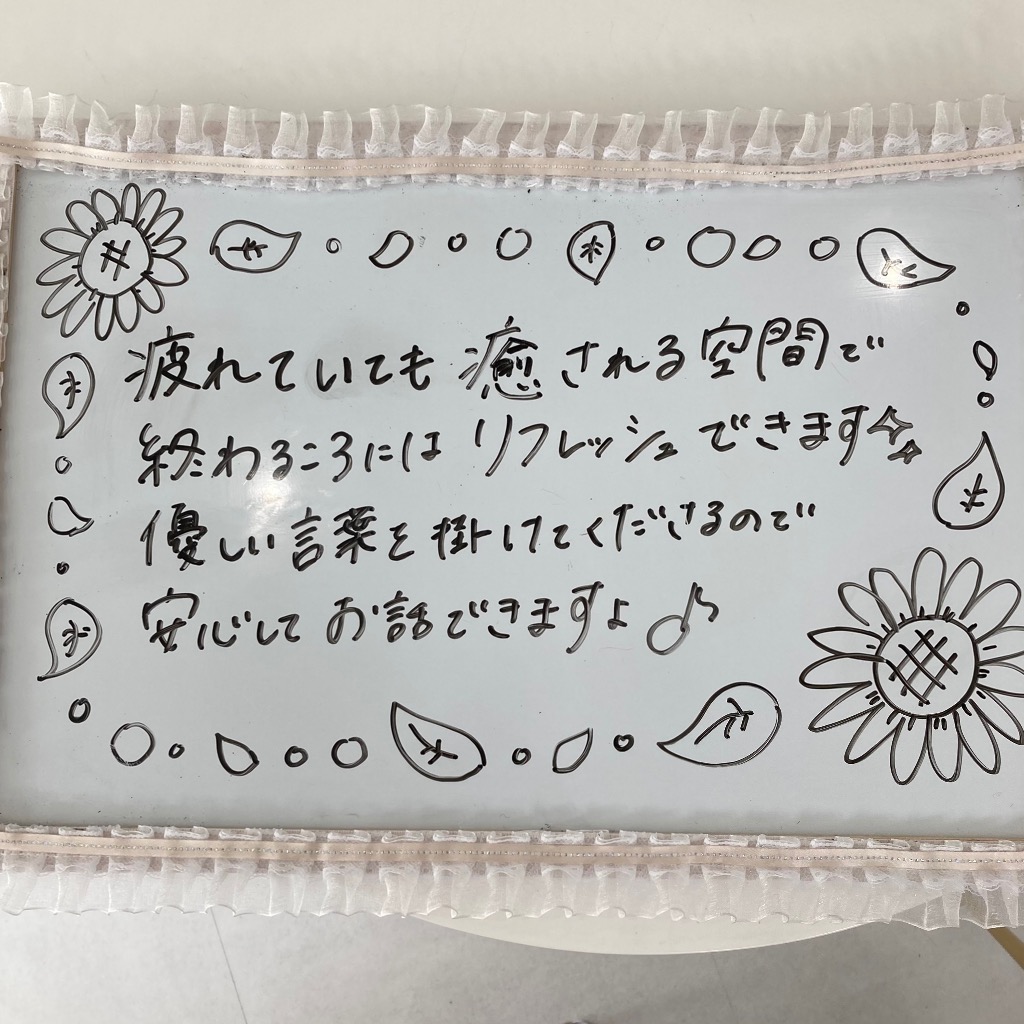 疲れていても癒される空間で
終わるころにはリフレッシュできます✨
優しい言葉を掛けてくださるので
安心してお話できますよ♪